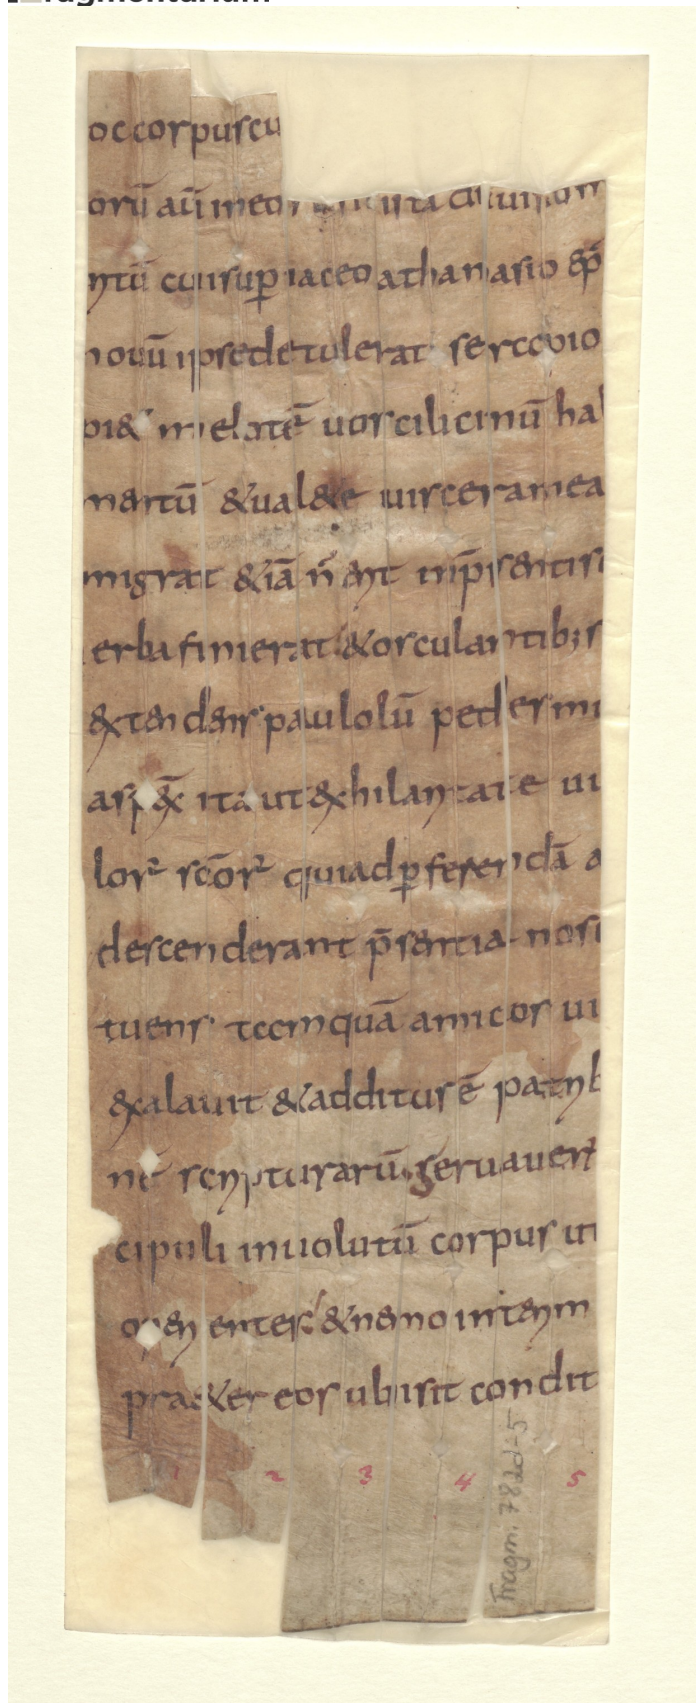 occorpuscu
orū aūt meor
cui suꝑ iaceo athanasio ep̄
nouū ipse detulerat serapio
uos cilicinū ha
mentū &ual&e uiscera mea
migrat &iā n̄ erit inp̄senti s
erba finierat &osculantib; s
extendens paululū pedes m
asp ita ut &hilaritate
lor scōr qui ad ꝑferendā a
descenderant p̄sentia nos
tuens tāmquā amicos ui
exalauit &additus ē patrib
scripturarū seruauer
cipuli inuolutū corpus
operientes &nemo interim
praeter eos ubi sit condit
1 2 3 4 5
Fragm. 782d-5